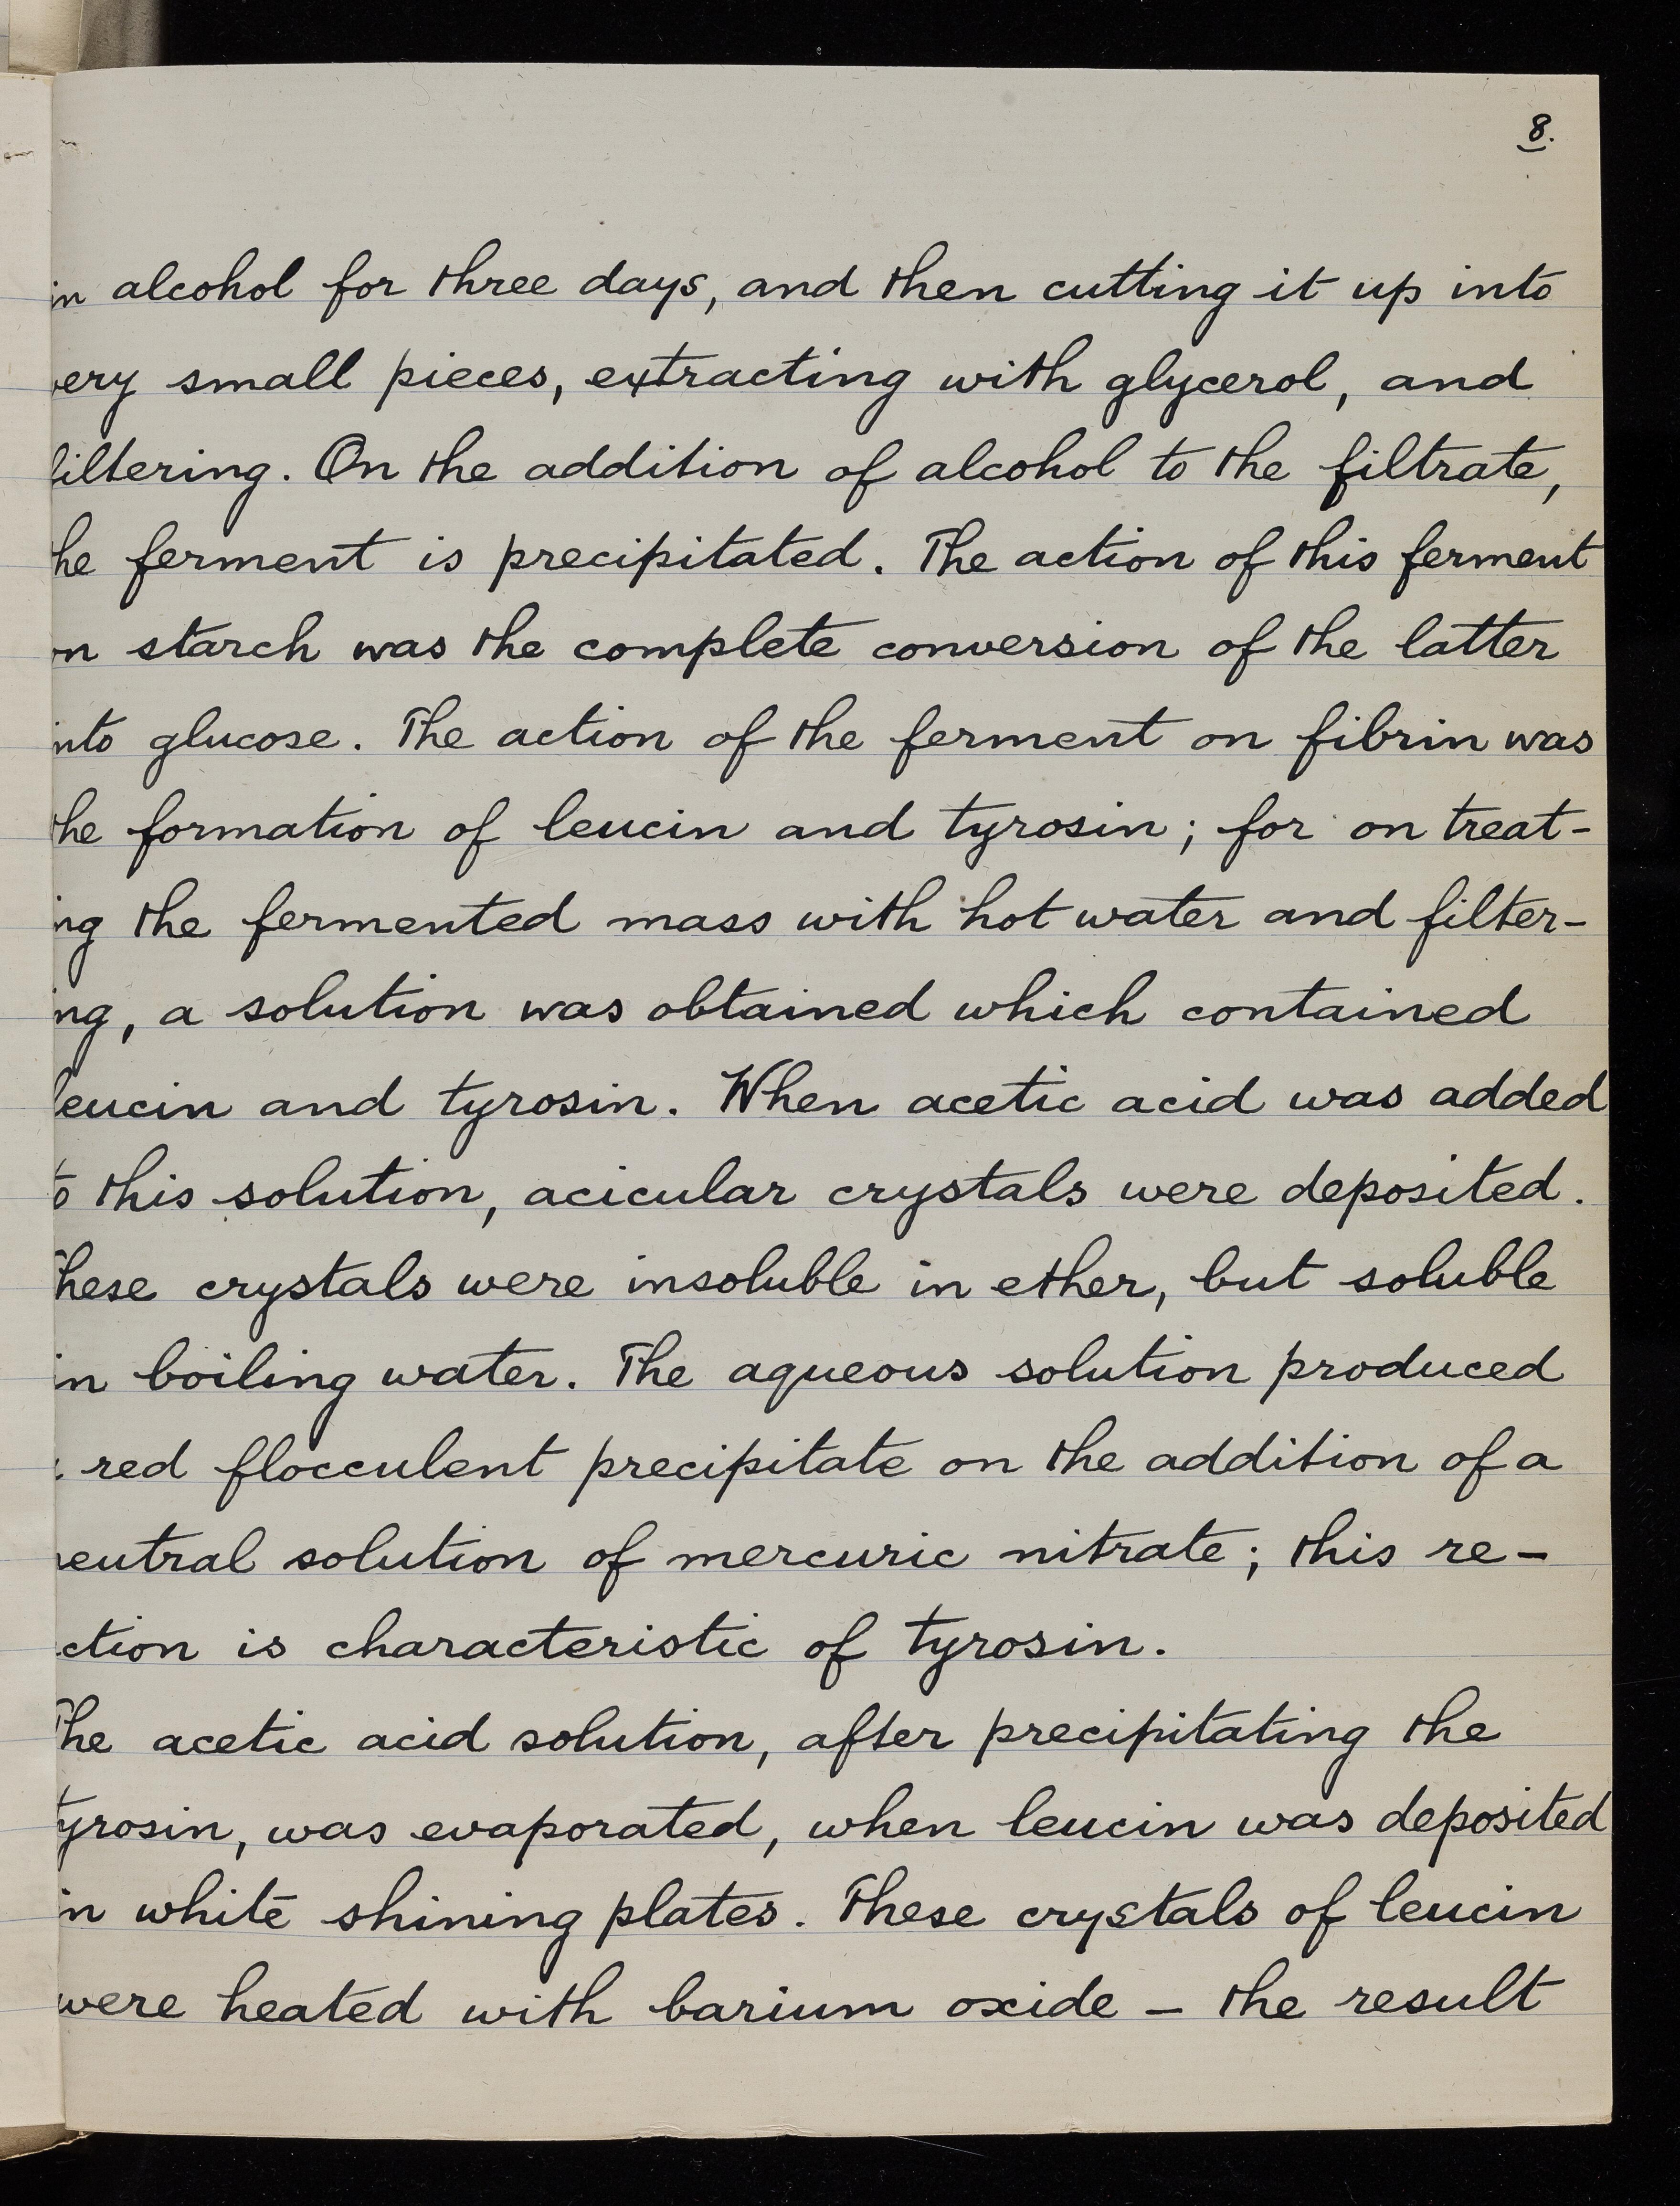 8.
in alcohol for three days, and then cutting it up into
very small pieces, extracting with glycerol, and
filtering. On the addition of alcohol to the filtrate,
the ferment is precipitated. The action of this ferment
on starch was the complete conversion of the latter
into glucose. The action of the ferment on fibrin was
the formation of leucin and tyrosin; for on treat-
ing the fermented mass with hot water and filter-
ing, a solution was obtained which contained
leucin and tyrosin. When acetic acid was added
to this solution, acicular crystals were deposited.
These crystals were insoluble in ether, but soluble
in boiling water. The aqueous solution produced
a red flocculent precipitate on the addition of a
neutral solution of mercuric nitrate; this re-
action is characteristic of tyrosin.
The acetic acid solution, after precipitating the
tyrosin, was evaporated, when leucin was deposited
in white shining plates. These crystals of leucin
were heated with barium oxide – the result